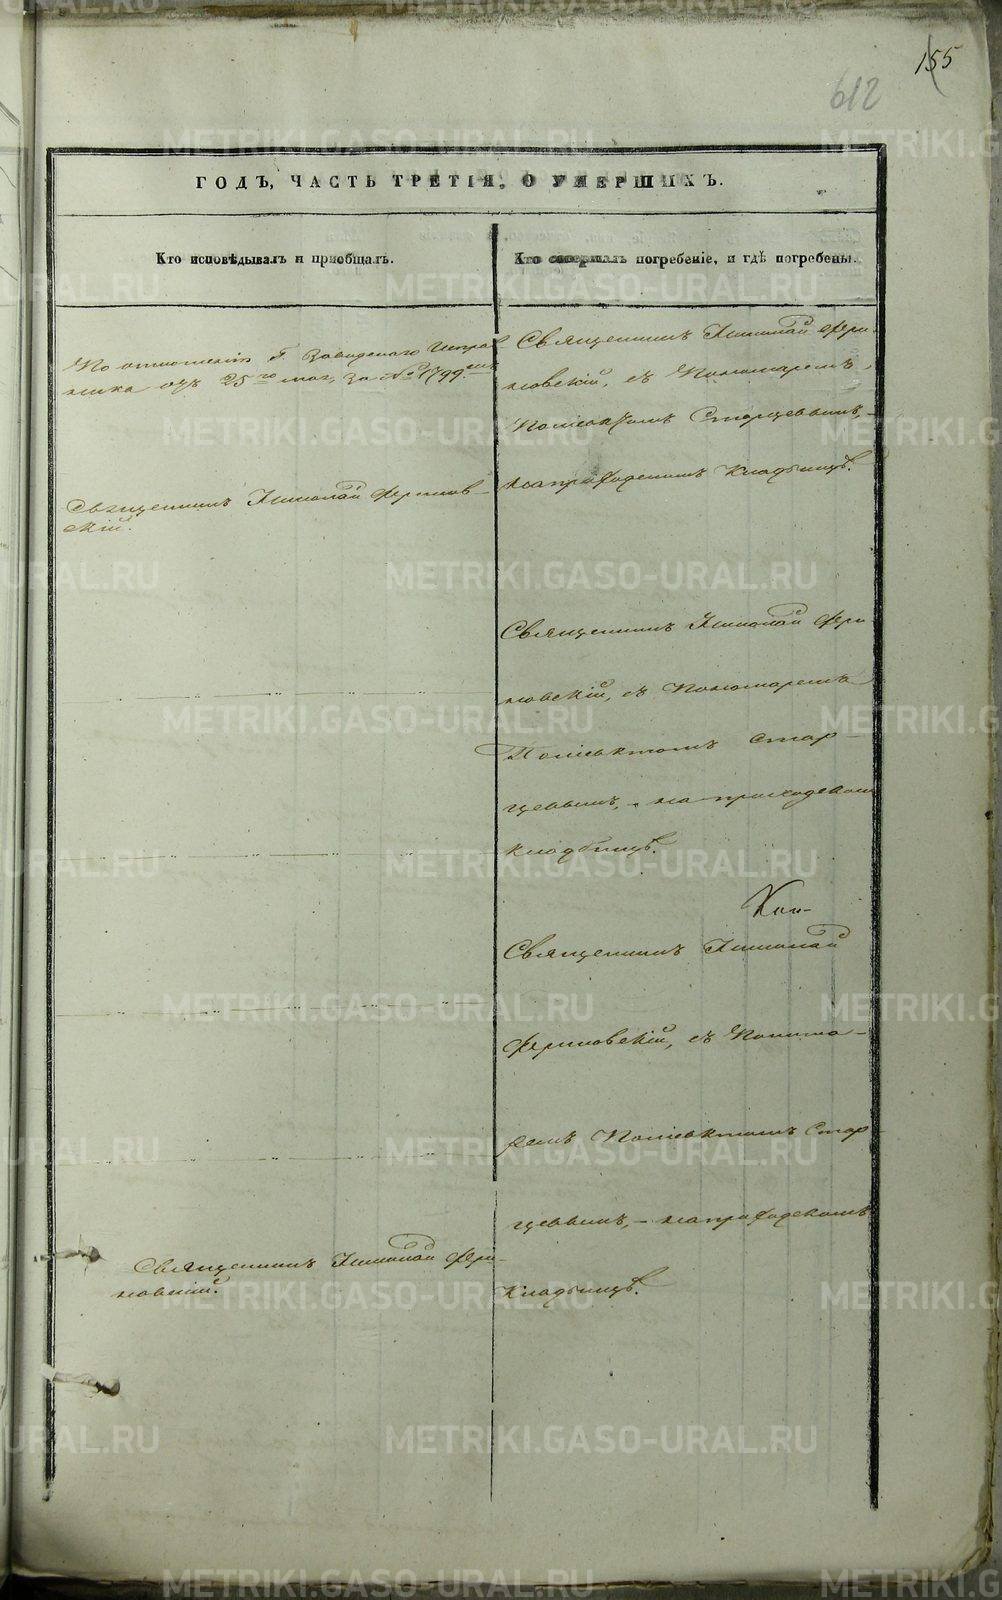 155
612
ГОДЪ, ЧАСТЬ ТРЕТІЯ, О УМЕРШИХЪ.
Кто исповѣдывалъ и пріобщалъ.
Кто совершалъ погребеніе, и гдѣ погребены.
По отношенію Г. Заводскаго Исправ
ника отъ 25го мая, за № 1799мъ
Священникъ Николай
скій.
Священникъ Николай
новскій, съ Пономаремъ,
Поліевктомъ Старцевымъ,
на приходскомъ кладбищѣ.
Священникъ Николай
новскій, съ Пономаремъ
Поліевктомъ Стар-
цевымъ, на приходскомъ
кладбищѣ.
Священникъ Николай
съ Понома-
ремъ Поліевктомъ Стар-
цевымъ, на приходскомъ
кладбищѣ.
Священникъ Николай
новскій.
METRIKI.GASO-URAL.RU